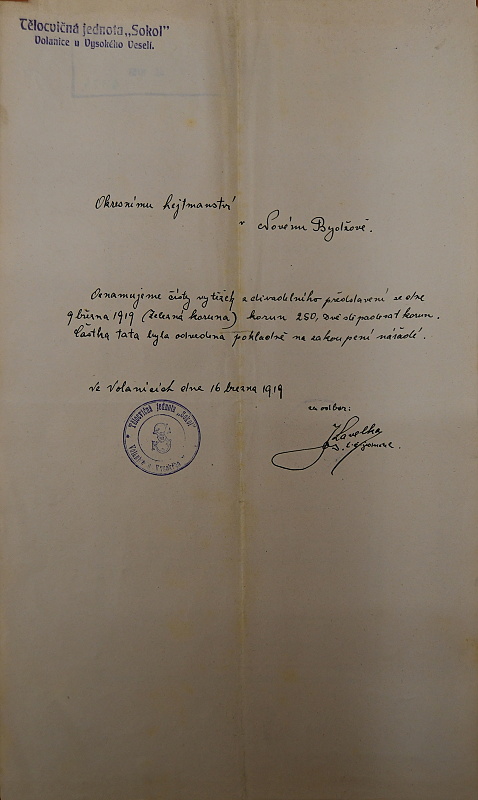 Tělocvičná jednota „Sokol"
Volanice u Vysokého Veselí.
Okresnímu hejtmanství
v Novém Bydžově.
Oznamujeme čistý výtěžek z divadelního představení ze dne
9 března 1919 (Železná koruna) korun 250, dvě stě padesát korun.
Částka tato byla odvedena pokladně na zakoupení nářadí.
Ve Volanicích dne 16 března 1919
za odbor:
J. Havelka
Tělocvičná jednota „Sokol"